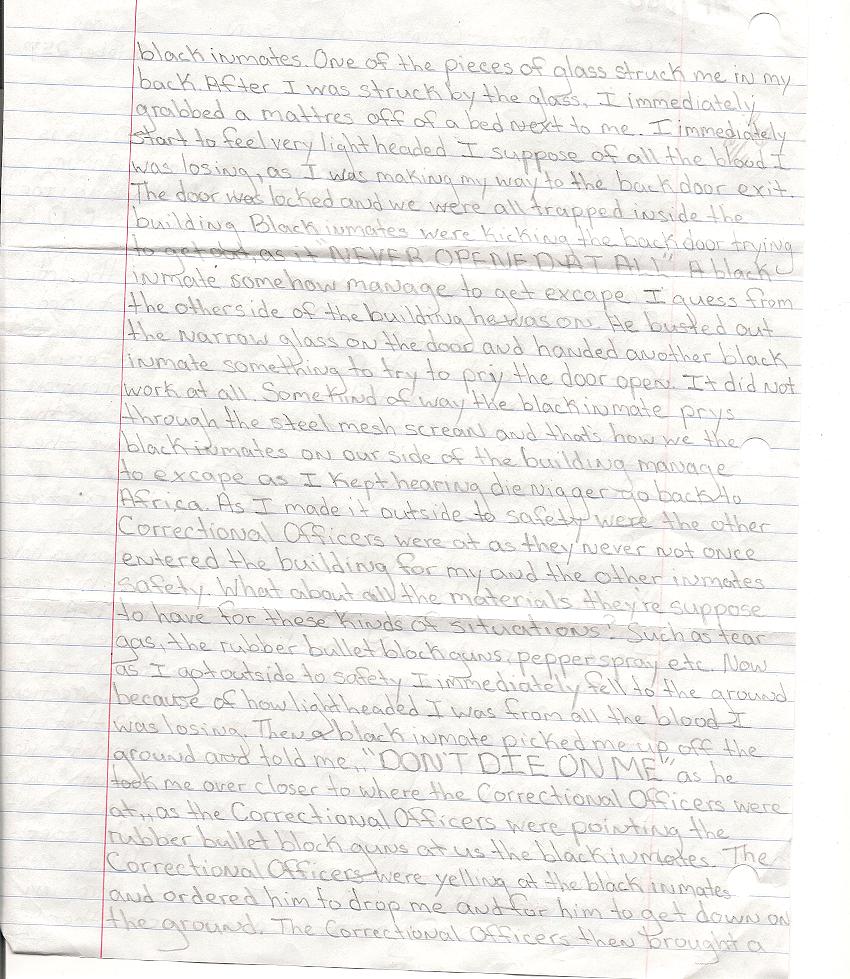 black inmates. One of the pieces of glass struck me in my
back. After I was struck by the glass, I immediately
grabbed a mattres off of a bed next to me. I immediately
start to feel very lightheaded I suppose of all the blood I
was losing, as I was making my way to the back door exit.
The door was locked and we were all trapped inside the
building. Black inmates were kicking the back door trying
to get out as it "NEVER OPENED AT ALL" A black
inmate somehow manage to get excape. I guess from
the otherside of the building he was on. He busted out
the narrow glass on the door and handed another black
inmate something to try to pry the door open. It did not
work at all. Some kind of way the black inmate prys
through the steel mesh screan and that's how we the
black inmates on our side of the building manage
to excape as I kept hearing die nigger go back to
Africa. As I made it outside to safety were the other
Correctional Officers were at as they never not once
entered the building for my and the other inmates
safety. What about all the materials they're suppose
to have for these kinds of situations? Such as tear
gas, the rubber bullet block guns, pepper spray etc. Now
as I got outside to safety I immediately fell to the ground
because of how lightheaded I was from all the blood I
was losing. Then a black inmate picked me up off the
ground and told me,, "DON'T DIE ON ME" as he
took me over closer to where the Correctional Officers were
at,, as the Correctional Officers were pointing the
rubber bullet block guns at us the black inmates. The
Correctional Officers were yelling at the black inmates
and ordered him to drop me and for him to get down on
the ground. The Correctional Officers then brought a